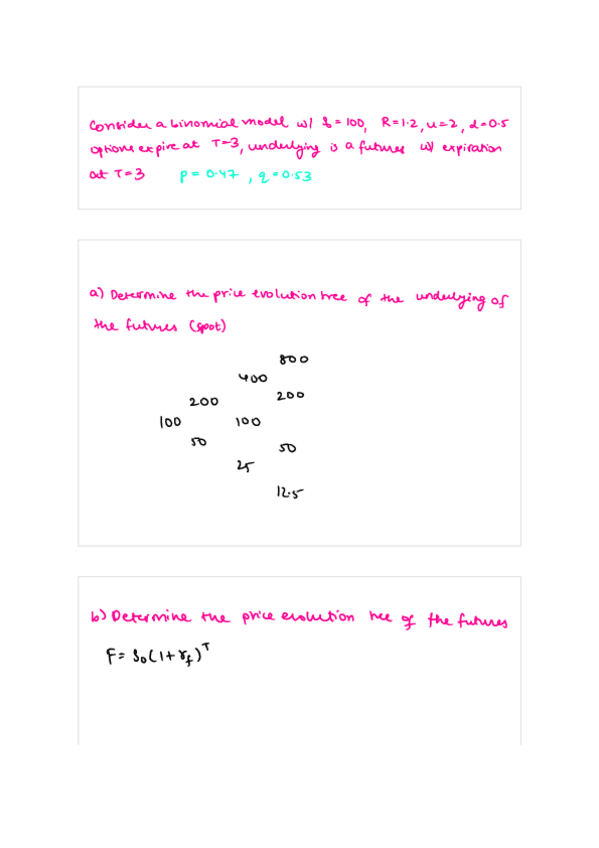 Consider a binomial model w/ S = 100, R=1.2, u=2, d=0.5
options expire at T=3, underlying is a futures w/ expiration
at T=3 p = 0.47, q = 0.53
a) Determine the price evolution tree of the underlying of
the futures (spot)
800
400
200
200
100
100
50
50
25
12.5
b) Determine the price evolution tree of the futures
F = S₀(1+r_f)ᵀ